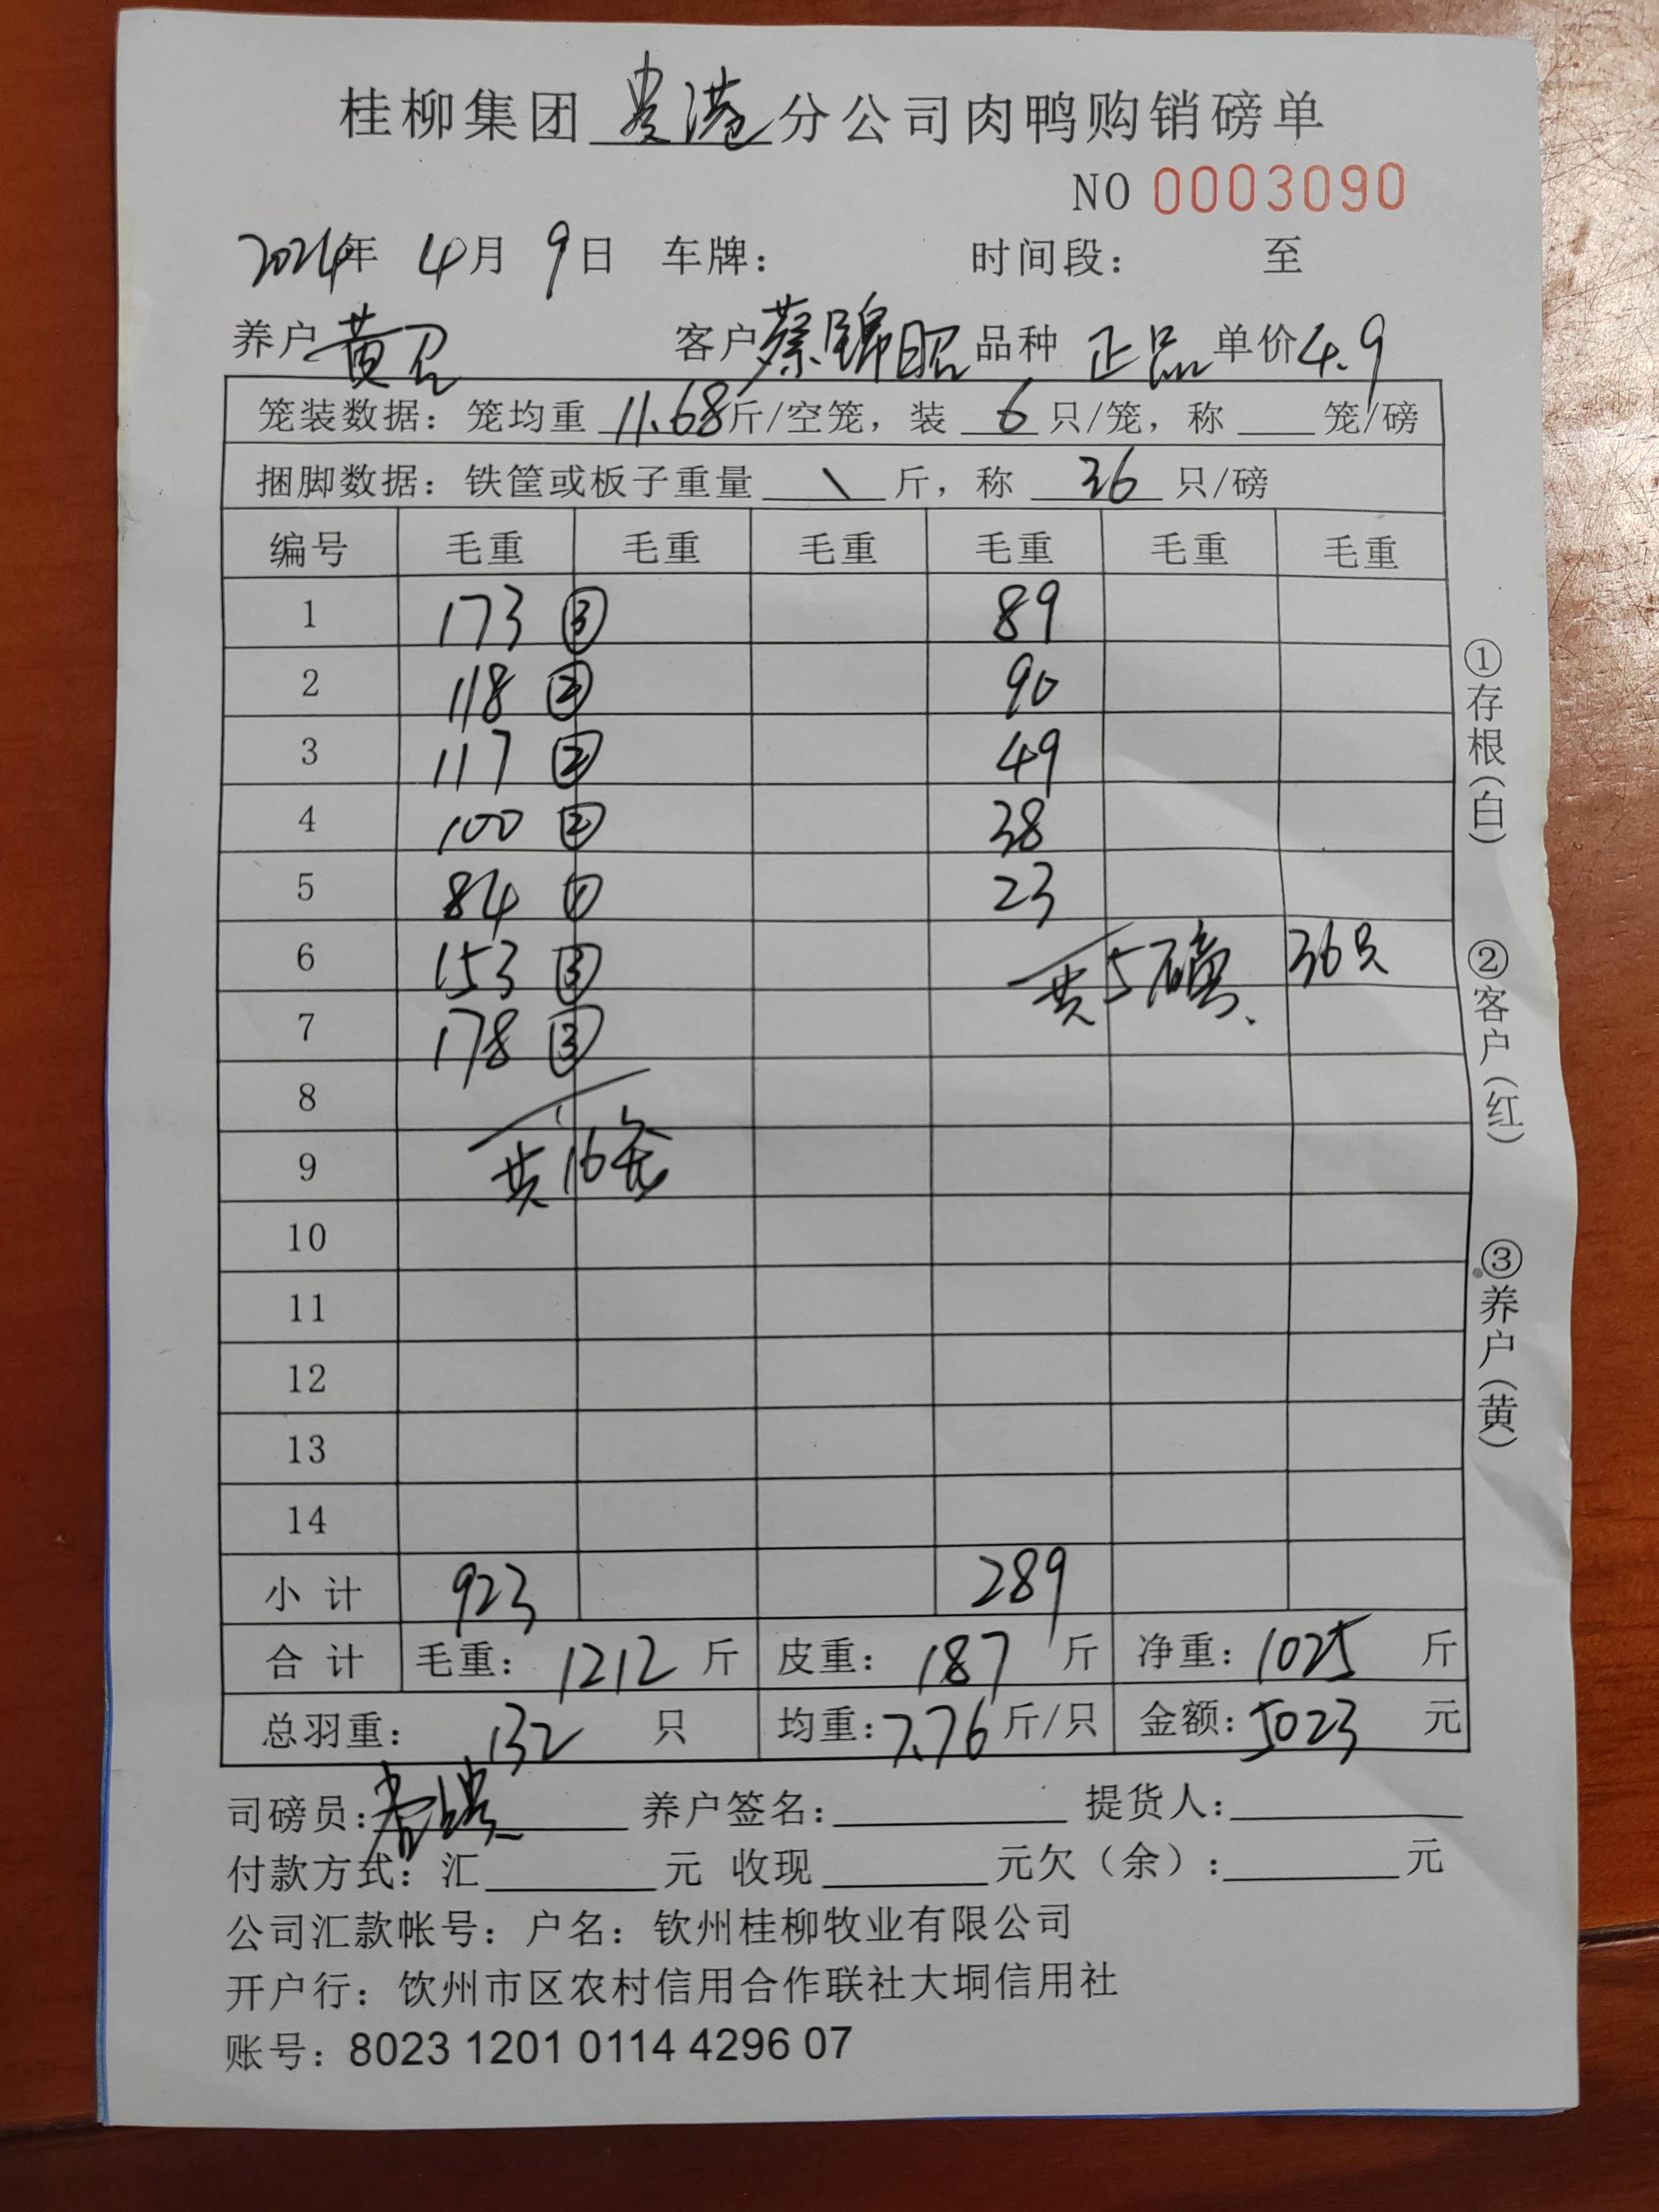 桂柳集团贵港分公司肉鸭购销磅单
NO 0003090
2024年 4月 9日 车牌： 时间段： 至
养户 黄召 客户 蔡锦昭 品种 正品 单价 4.9
笼装数据：笼均重 11.68 斤/空笼，装 6 只/笼，称 笼/磅
捆脚数据：铁筐或板子重量 \ 斤，称 36 只/磅
编号 毛重 毛重 毛重 毛重 毛重 毛重
1 173 ③ 89
2 118 ② 90
3 117 ② 49
4 100 ② 38
5 84 ① 23
6 153 ③ 共5磅、36只
7 178 ③
8
9 共16笼
10
11
12
13
14
小计 923 289
合计 毛重：1212 斤 皮重：187 斤 净重：1025 斤
总羽重：132 只 均重：7.76 斤/只 金额：5023 元
司磅员： 养户签名： 提货人：
付款方式：汇 元 收现 元欠（余）： 元
公司汇款帐号：户名：钦州桂柳牧业有限公司
开户行：饮州市区农村信用合作联社大垌信用社
账号：8023 1201 0114 4296 07
①存根(白) ②客户(红) ③养户(黄)